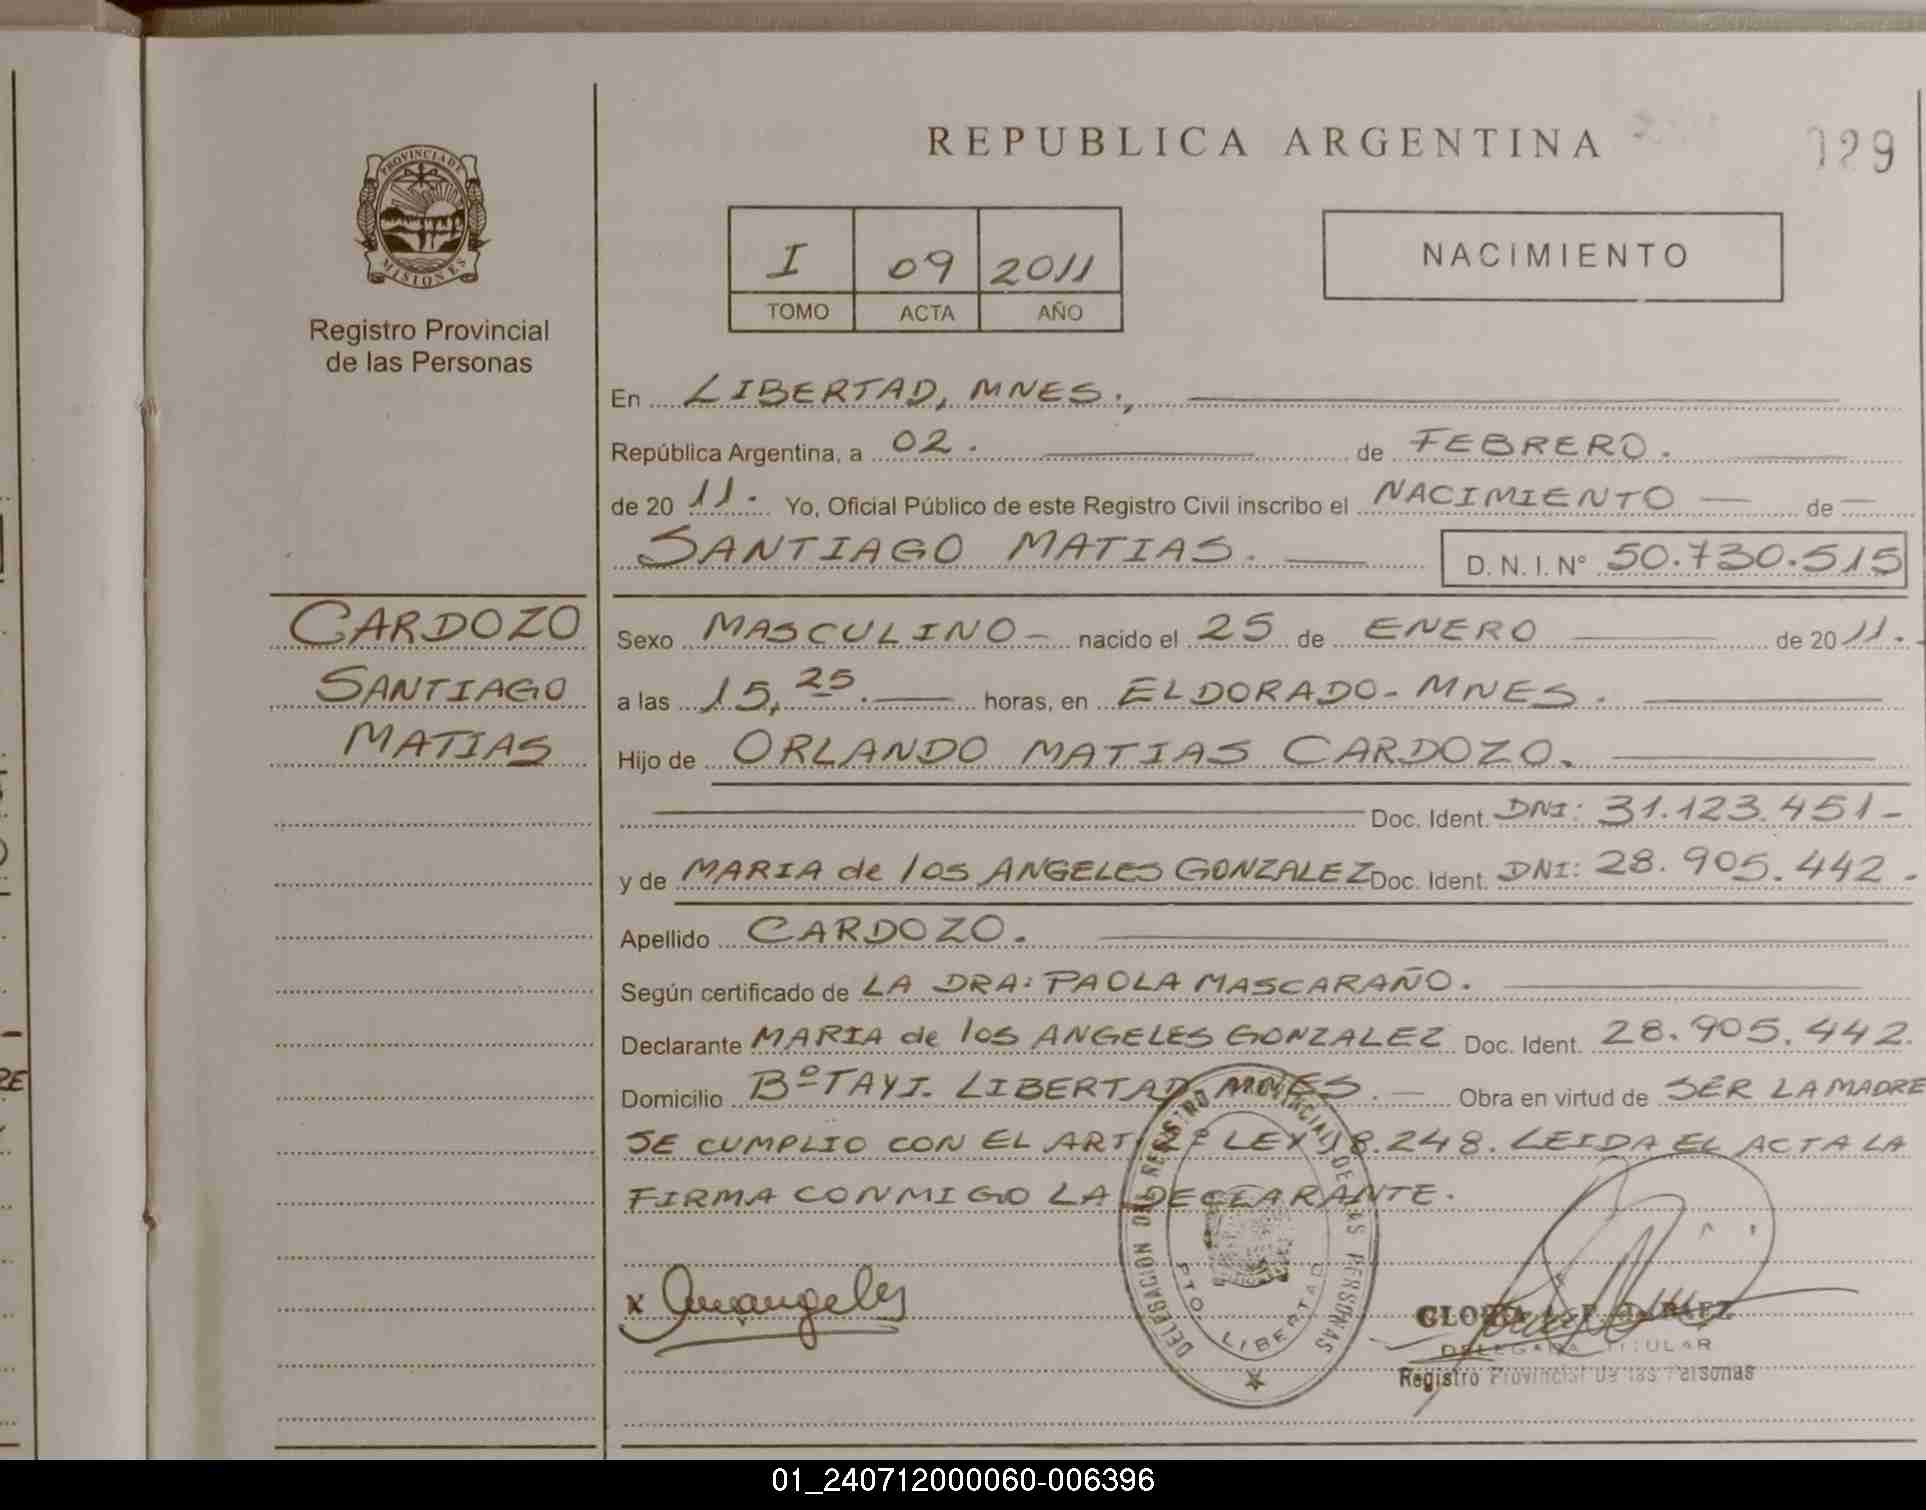 REPUBLICA ARGENTINA
029
PROVINCIA DE
MISIONES
Registro Provincial
de las Personas
I 09 2011
TOMO ACTA AÑO
NACIMIENTO
En LIBERTAD, MNES.,
República Argentina, a 02. de FEBRERO.
de 20 11. Yo, Oficial Público de este Registro Civil inscribo el NACIMIENTO de
SANTIAGO MATIAS. D. N. I. Nº 50.730.515
CARDOZO
SANTIAGO
MATIAS
Sexo MASCULINO nacido el 25 de ENERO de 20 11.
a las 15,25. horas, en ELDORADO-MNES.
Hijo de ORLANDO MATIAS CARDOZO.
Doc. Ident. DNI: 31.123.451-
y de MARIA de los ANGELES GONZALEZ Doc. Ident. DNI: 28.905.442.
Apellido CARDOZO.
Según certificado de LA DRA: PAOLA MASCARAÑO.
Declarante MARIA de los ANGELES GONZALEZ Doc. Ident. 28.905.442.
Domicilio Bº TAYI. LIBERTAD, MNES. Obra en virtud de SER LA MADRE
SE CUMPLIO CON EL ART. 2º LEY 18.248. LEIDA EL ACTA LA
FIRMA CONMIGO LA DECLARANTE.
DELEGACION DEL REGISTRO PROVINCIAL DE LAS PERSONAS
PTO. LIBERTAD
x
DELEGADA TITULAR
Registro Provincial De las Personas
01_240712000060-006396